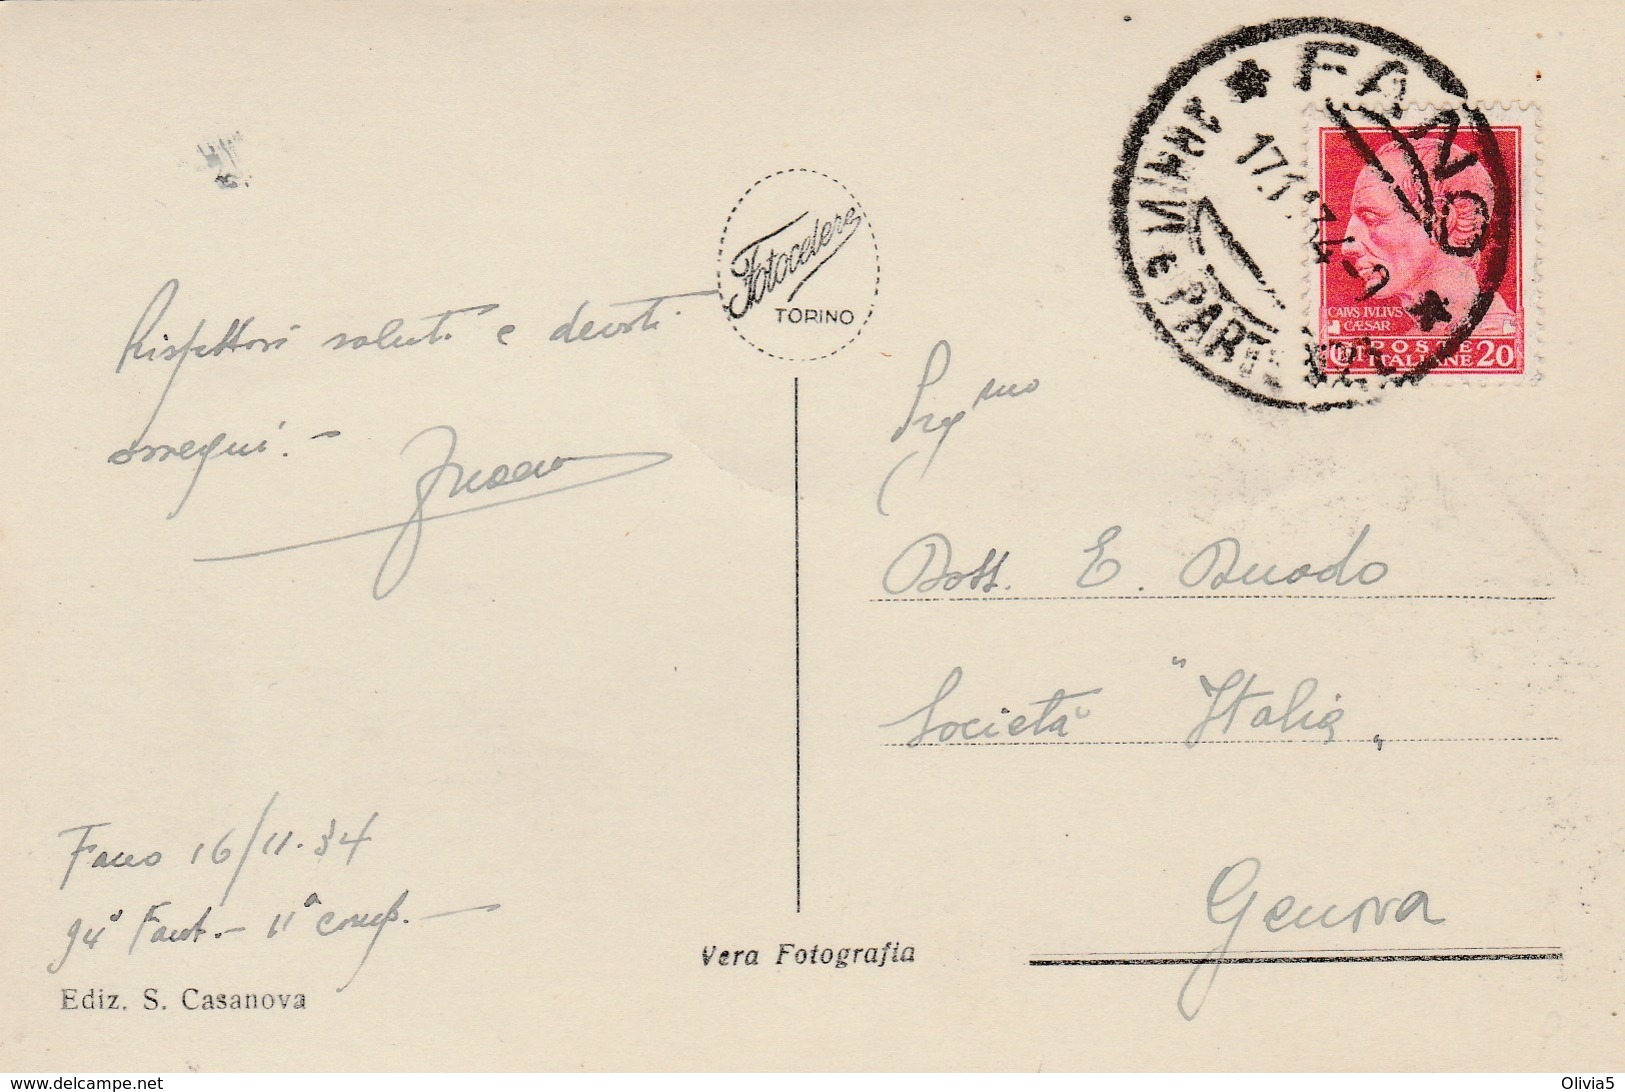 Rispettosi saluti e devoti
ossequi. –
Fano 16/11.34
94° Fant. – 11ª comp. –
Ediz. S. Casanova
Fotocelere
TORINO
Vera Fotografia
FANO
17.11.34-9
ARRIVI E PARTENZE
CAIVS IVLIVS
CÆSAR
POSTE
CENT ITALIANE 20
Preg mo
Dott. E. Duodo
Società "Italia"
Genova
www.delcampe.net
Olivia5